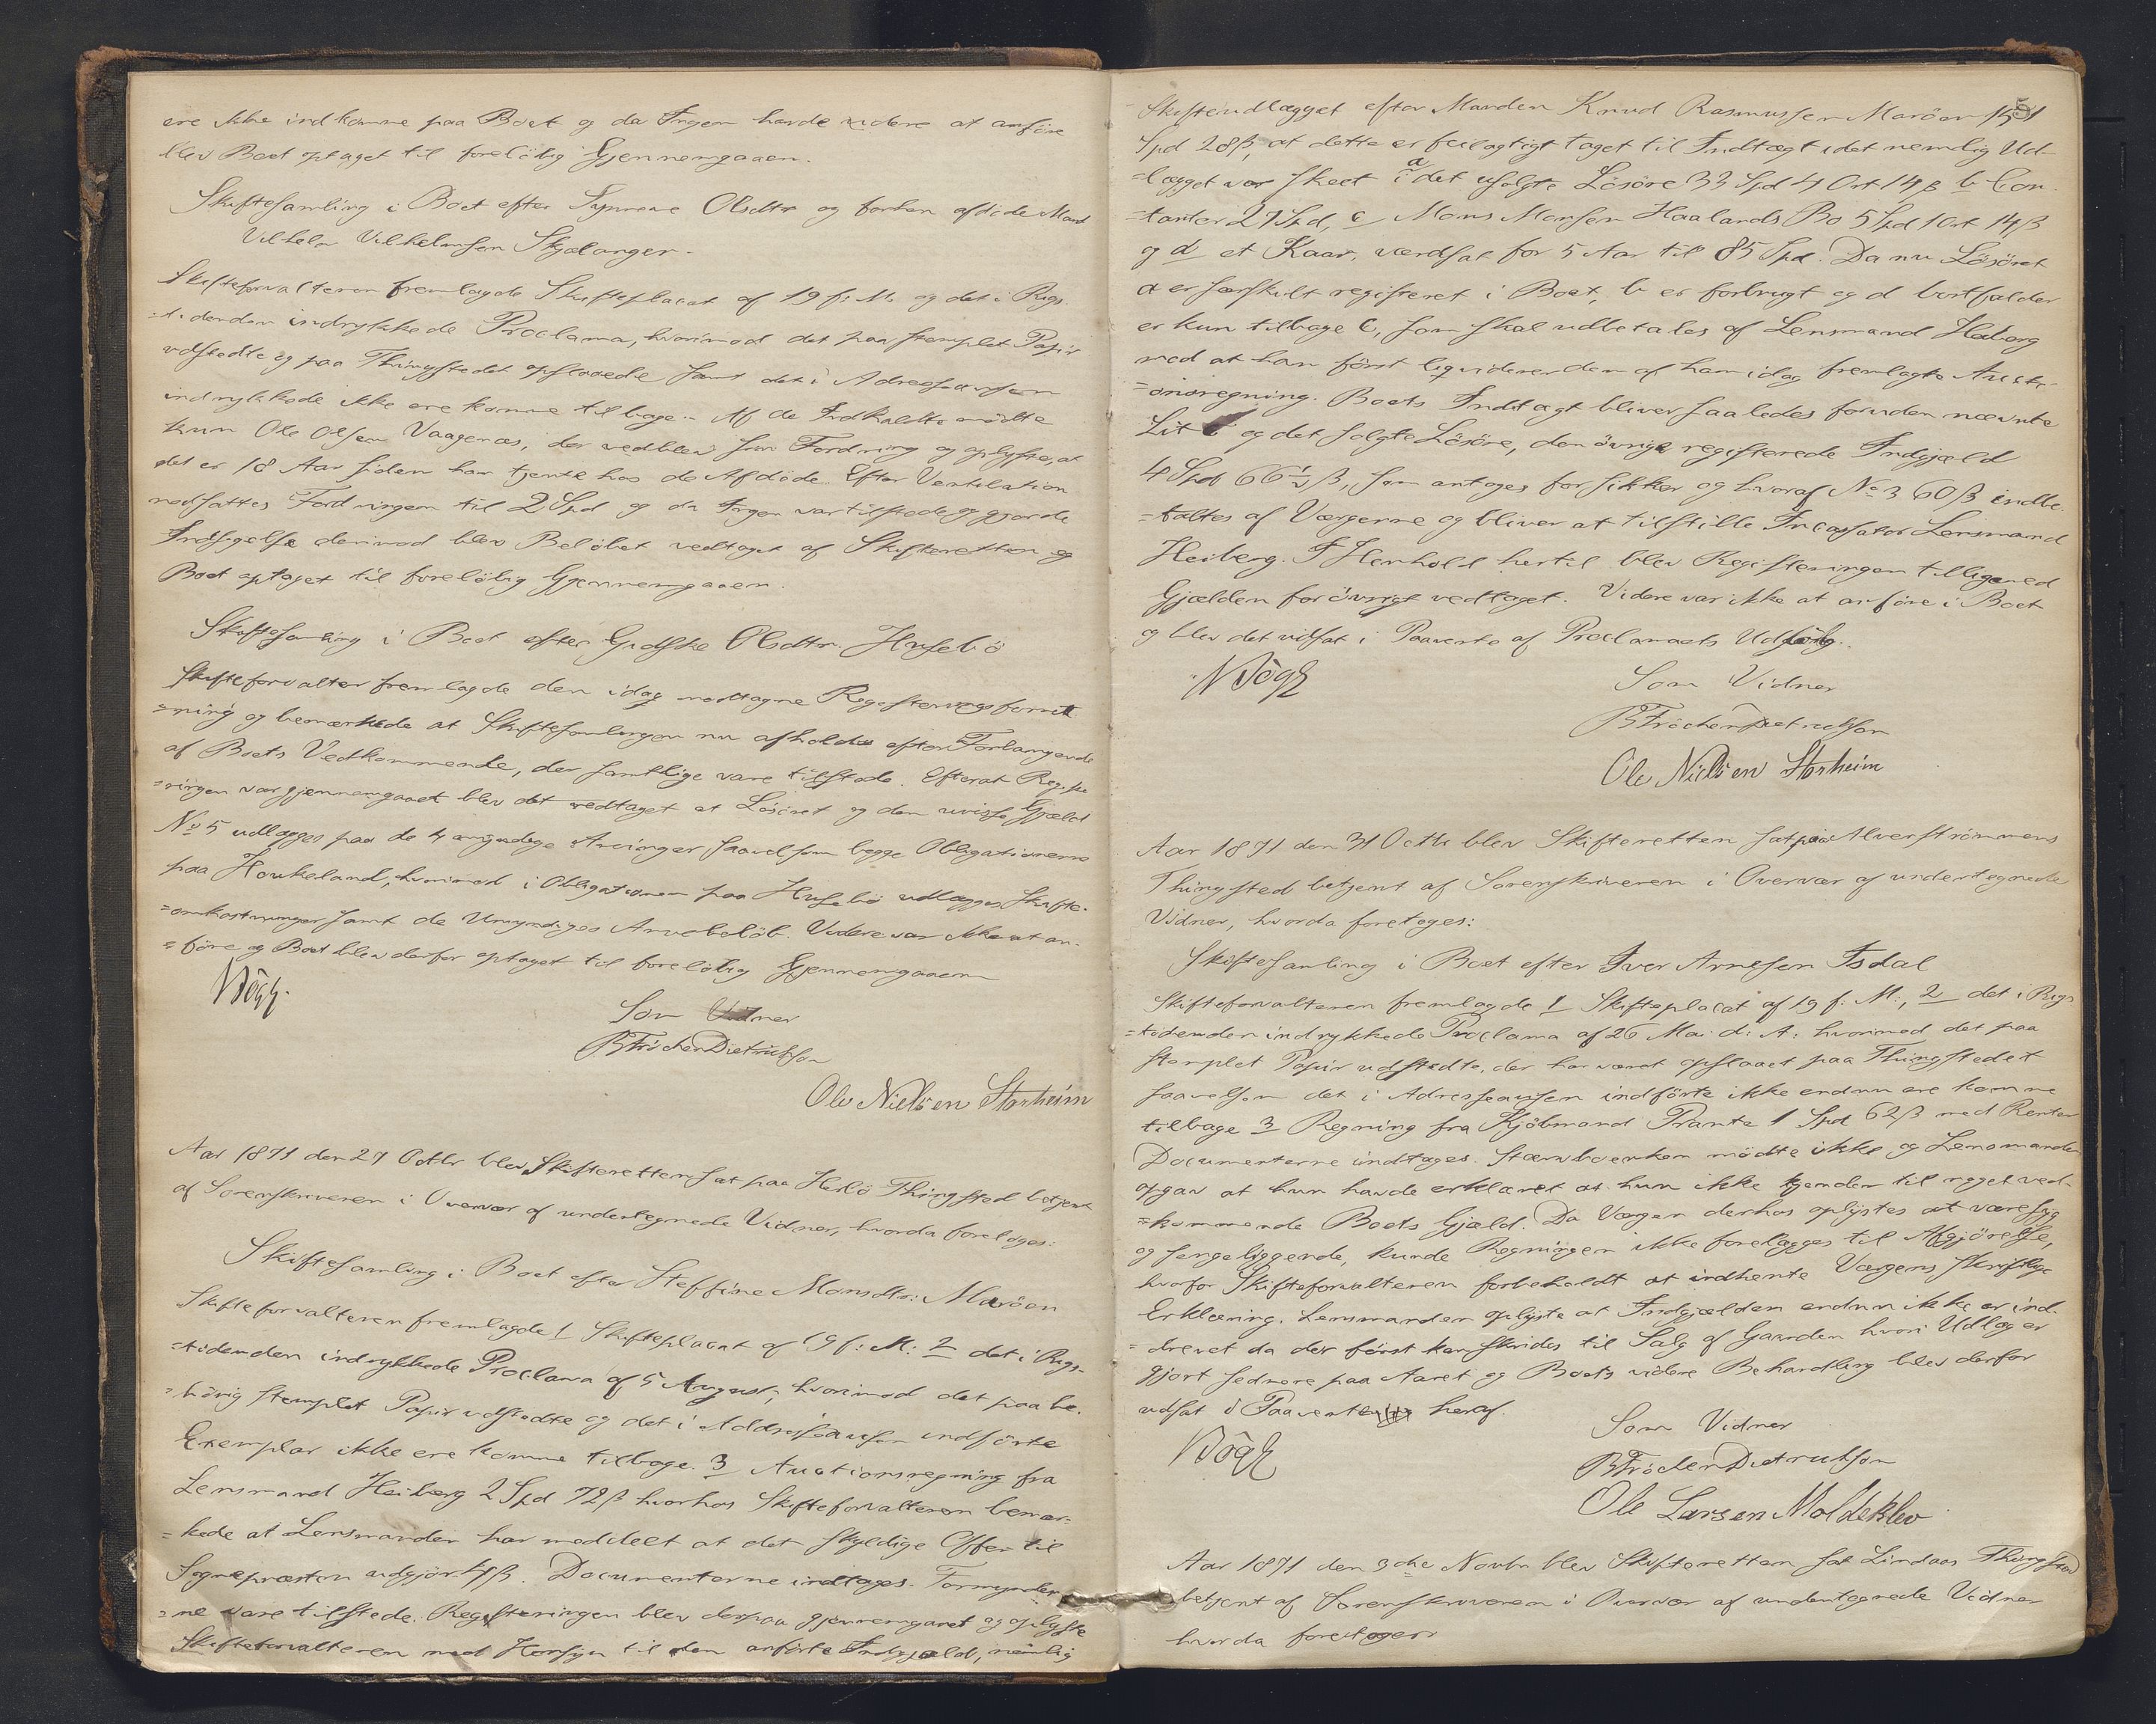 ere ikke indkomne paa Boet og da Ingen havde videre at anföre
blev Boet optaget til forelöbig Gjennemgaaen.
Skiftesamling i Boet efter Synneve Olsdtr og forhen afdöde Mand
Vilhelm Vilhelmsen Skjelanger.
Skifteforvalteren fremlagde Skifteplacat af 19 f: M. og det i Rigs
=tidenden indrykkede Proclama, hvorimod det paa stemplet Papir
udstedte og paa Thingstedet opslaaede samt det i Adresseavisen
indrykkede ikke ere komne tilbage. Af de Indkaldte mödte
kun Ole Olsen Vaagenæs, der vedblev sin Fordring og oplyste, at
det er 18 Aar siden han tjente hos de Afdöde. Efter Ventilation
nedsattes Fordringen til 2 Spd og da Ingen var tilstede og gjorde
Indsigelse derimod blev Belöbet vedtaget af Skifteretten og
Boet optaget til forelöbig Gjennemgaaen.
Skiftesamling i Boet efter Gudske Olsdtr. Husebö
Skifteforvalter fremlagde den idag modtagne Registeringsforret
=ning og bemærkede at Skiftesamlingen nu afholdes efter Forlangende
af Boets Vedkommende, der samtlige vare tilstede. Efterat Registe
=ringen var gjennemgaaet blev det vedtaget at Lösöret og den uvisse Gjæld
No 5 udlægges paa de 4 myndige Arvinger, saavelsom begge Obligationerne
paa Houkeland, hvorimod i Obligationen paa Husebö udlægges Skifte-
=omkostninger samt de Umyndiges Arvebelöb. Videre var ikke at an-
=före og Boet blev derfor optaget til forelöbig Gjennemgaaen
NBögh.
Som Vidner
BTröchen Dietrichson
Ole Nielsen Storheim
Aar 1871 den 27 Octbr blev Skifteretten sat paa Herlö Thingsted betjent
af Sorenskriveren i Overvær af undertegnede Vidner, hvorda foretoges:
Skiftesamling i Boet efter Steffine Monsdtr: Maröen
Skifteforvalteren fremlagde 1 Skifteplacat af 19 f: M: 2 det i Rigs-
=tidenden indrykkede Proclama af 5 August, hvorimod det paa be-
=hörig stemplet Papir udstedte og det i Addresseavisen indförte
Exemplar ikke ere komne tilbage. 3 Auctionsregning fra
Lensmand Heiberg 2 Spd 72 ß hvorhos Skifteforvalteren bemær-
=kede at Lensmanden har meddelt at det skyldige Offer til
Sognepræsten udgjör ß. Documenterne indtages. Formynder
=ne vare tilstede. Registeringen blev derpaa gjennemgaaet og oplyste
Skifteforvalteren med Hensyn til den anförte Indgjæld, nemlig
5
Skifteudlægget efter Manden Knud Rasmussen Maröen
Spd 28 ß, at dette er feilagtigt taget til Indtægt idet nemlig Ud-
=lægget var skeet i a det usolgte Lösöre 33 Spd 4 Ort 14 ß b Con-
=tanter 27 Spd, c Mons Monsen Haalands Bo 5 Spd 1 Ort 14 ß
og d et Kaar, værdsat for 5 Aar til 85 Spd. Da nu Lösöret
a er særskilt registeret i Boet, b er forbrugt og d bortfalder
er kun tilbage c, som skal udbetales af Lensmand Heiberg
ved at han först liqviderer den af ham idag fremlagte Aucti-
=onsregning. Boets Indtægt bliver saaledes foruden nævnte
Lit c og det solgte Lösöre, den övrige registerede Indgjæld
4 Spd 66½ ß, som antoges for sikker og hvoraf No 3 60 ß indbe-
=taltes af Værgerne og bliver at tilstille Incassator Lensmand
Heiberg. I Henhold hertil blev Registeringen tilligemed
Gjælden forövrigt vedtaget. Videre var ikke at anföre i Boet
og blev det udsat i Paavente af Proclamaets Udlöb.
NBögh
Som Vidner
BTröchen Dietrichson
Ole Nielsen Storheim
Aar 1871 den 31 Octbr blev Skifteretten sat paa Alverströmmens
Thingsted betjent af Sorenskriveren i Overvær af undertegnede
Vidner, hvorda foretoges:
Skiftesamling i Boet efter Iver Arnesen Isdal
Skifteforvalteren fremlagde 1 Skifteplacat af 19 f. M:, 2 det i Rigs
=tidenden indrykkede Proclama af 26 Mai d: A: hvorimod det paa
stemplet Papir udstedte, der har været opslaaet paa Thingstedet
saavelsom det i Adresseavisen indförte ikke endnu ere komne
tilbage 3 Regning fra Kjöbmand Prante 1 Spd 62 ß med Renter
Documenterne indtages. Stervboenken mödte ikke og Lensmanden
opgav at hun havde erklæret at hun ikke kjender til noget ved-
=kommende Boets Gjæld. Da Værgen derhos oplystes at være syg
og sengeliggende, kunde Regningen ikke forelægges til Afgjörelse,
hvorfor Skifteforvalteren forbeholdt at indhente Værgens skriftlige
Erklæring. Lensmanden oplyste at Indgjælden endnu ikke er ind-
=drevet da der först kan skrides til Salg af Gaarden hvori Udlæg er
gjort sednere paa Aaret og Boets videre Behandling blev derfor
udsat i Paavente heraf.
NBögh
Som Vidner
BTröchen Dietrichson
Ole Larsen Moldeklev
Aar 1871 den 3die Novbr blev Skifteretten sat Lindaas Thingsted
betjent af Sorenskriveren i Overvær af undertegnede Vidner
hvorda foretoges